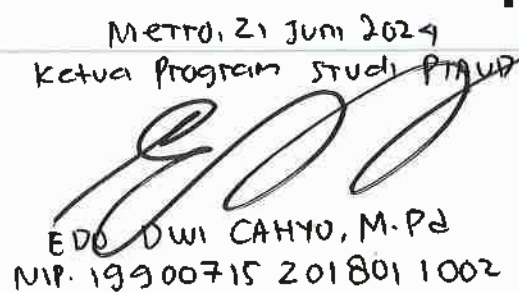 Metro, 21 Juni 2024
Ketua Program Studi PIAUD
EDO DWI CAHYO, M.Pd
NIP. 19900715 201801 1002